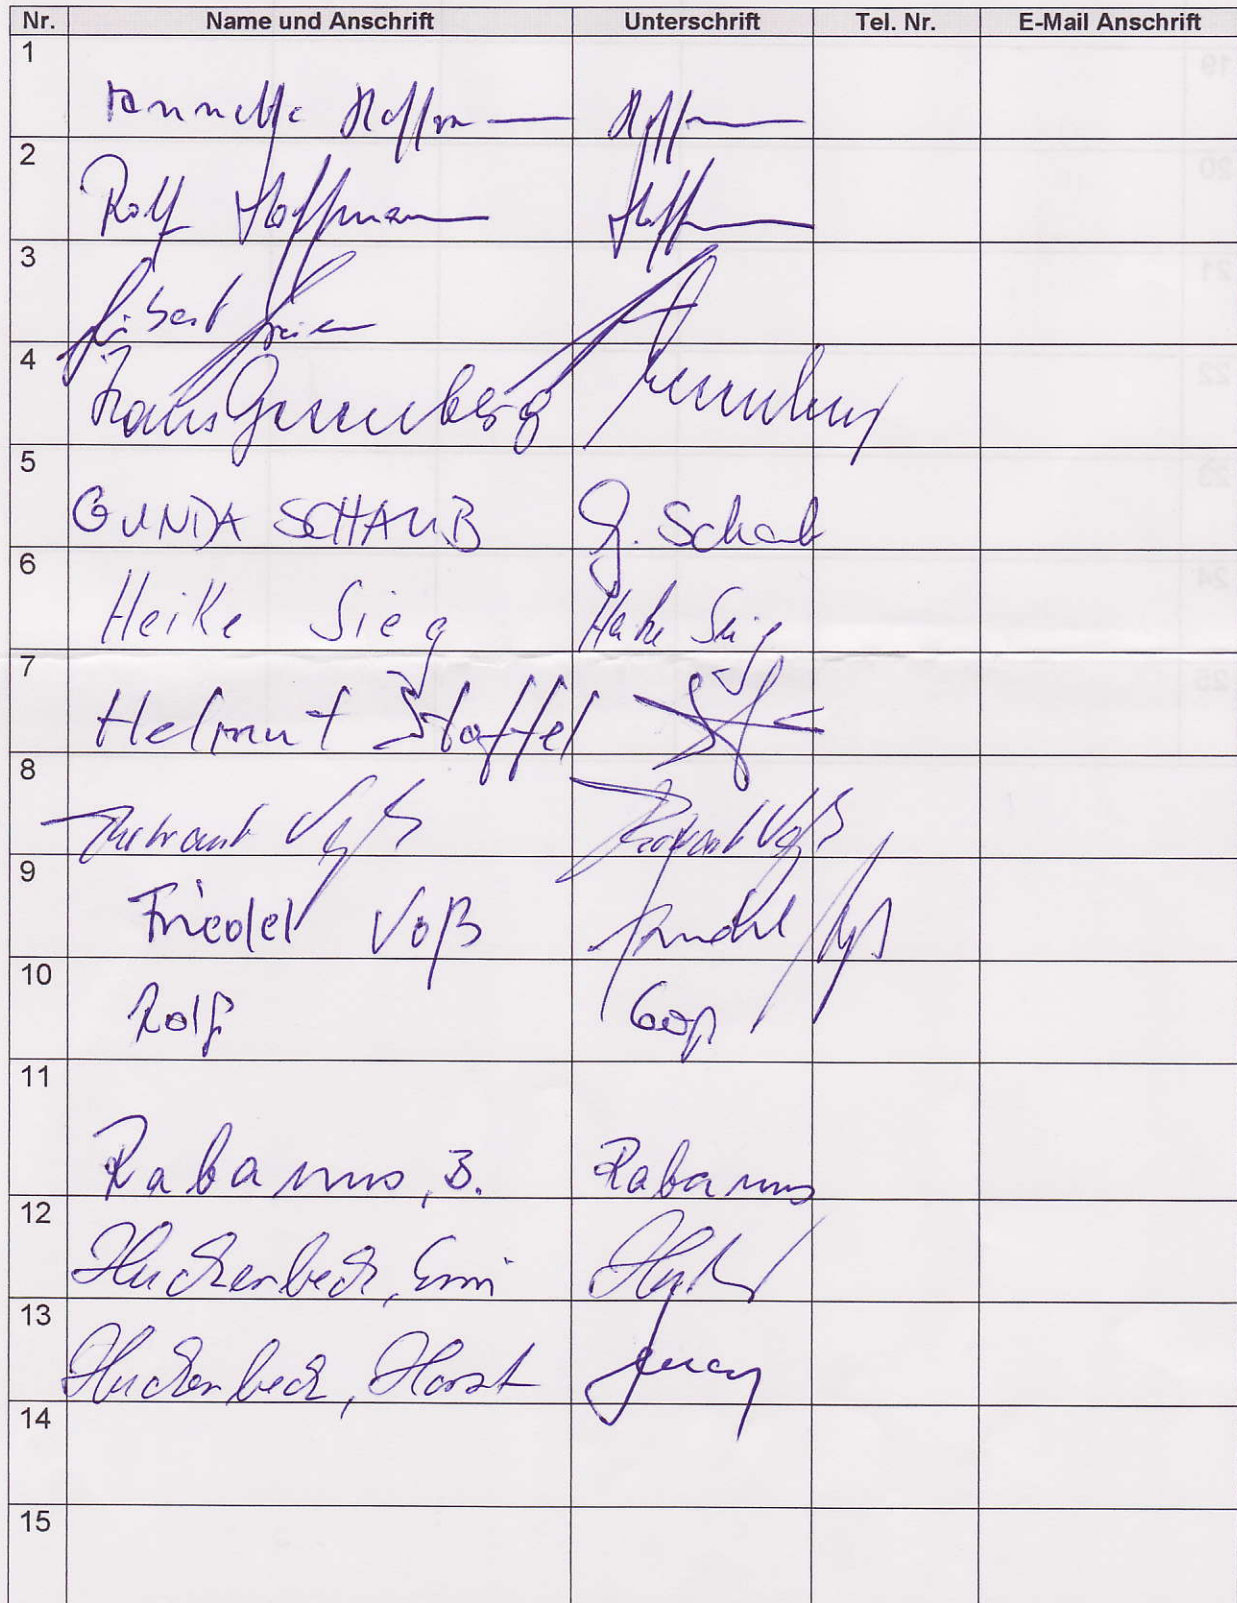 Nr. Name und Anschrift Unterschrift Tel. Nr. E-Mail Anschrift
1 Annette Hoffmann Hoffmann
2 Rolf Hoffmann Hoffmann
3
4 Hans
5 GUNDA SCHAUB G. Schaub
6 Heike Sieg Heike Sieg
7 Helmut Stoffel
8 Voß Voß
9 Friedel Voß Friedel Voß
10 Rolf
11 Rabanus, B. Rabanus
12 Huckenbeck, Emi
13 Huckenbeck, Horst
14
15
19
20
21
22
23
24
25